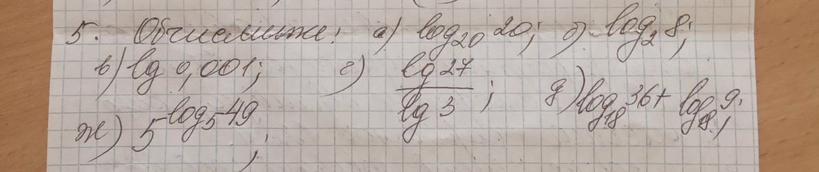 5. Обчисліть: а) log₂₀ 20; б) log₂ 8;
в) lg 0,001; г) lg 27 / lg 3; д) log₁₈ 36 + log₁₈ 9;
ж) 5^log₅ 49;